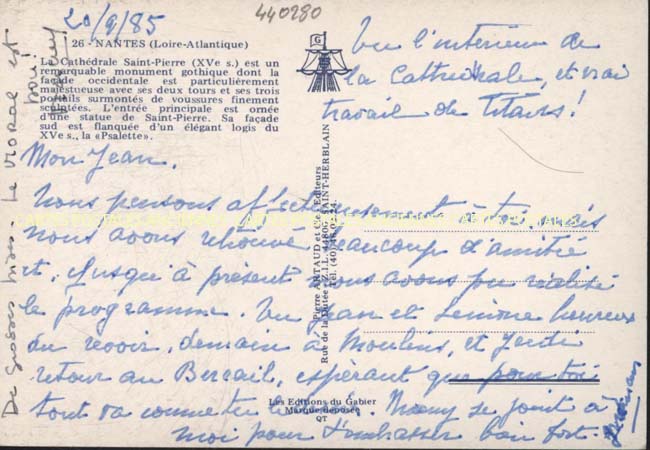 20/9/85
440280
26 - NANTES (Loire-Atlantique)
La Cathédrale Saint-Pierre (XVe s.) est un
remarquable monument gothique dont la
façade occidentale est particulièrement
majestueuse avec ses deux tours et ses trois
portails surmontés de voussures finement
sculptées. L'entrée principale est ornée
d'une statue de Saint-Pierre. Sa façade
sud est flanquée d'un élégant logis du
XVe s., la «Psalette».
Vu l'intérieur de
la Cathédrale, et vrai
travail de Titans!
Mon Jean.
Nous pensons affectueusement à toi, mais
nous avons retrouvé beaucoup d'amitié
et, jusqu'à présent nous avons pu réaliser
le programme. Vu Jean et Simone heureux
du revoir, demain à Moulins, et Jeudi
retour au Bercail, espérant que pour toi
tout va comme tu le . Mamy se joint à
moi pour t'embrasser bien fort.
De grosses . Le moral est
bon
Pierre ARTAUD et Cie / Editeurs
Rue de la Z.I.L. 44800 SAINT-HERBLAIN
Les Editions du Gabier
Marque déposée
QT